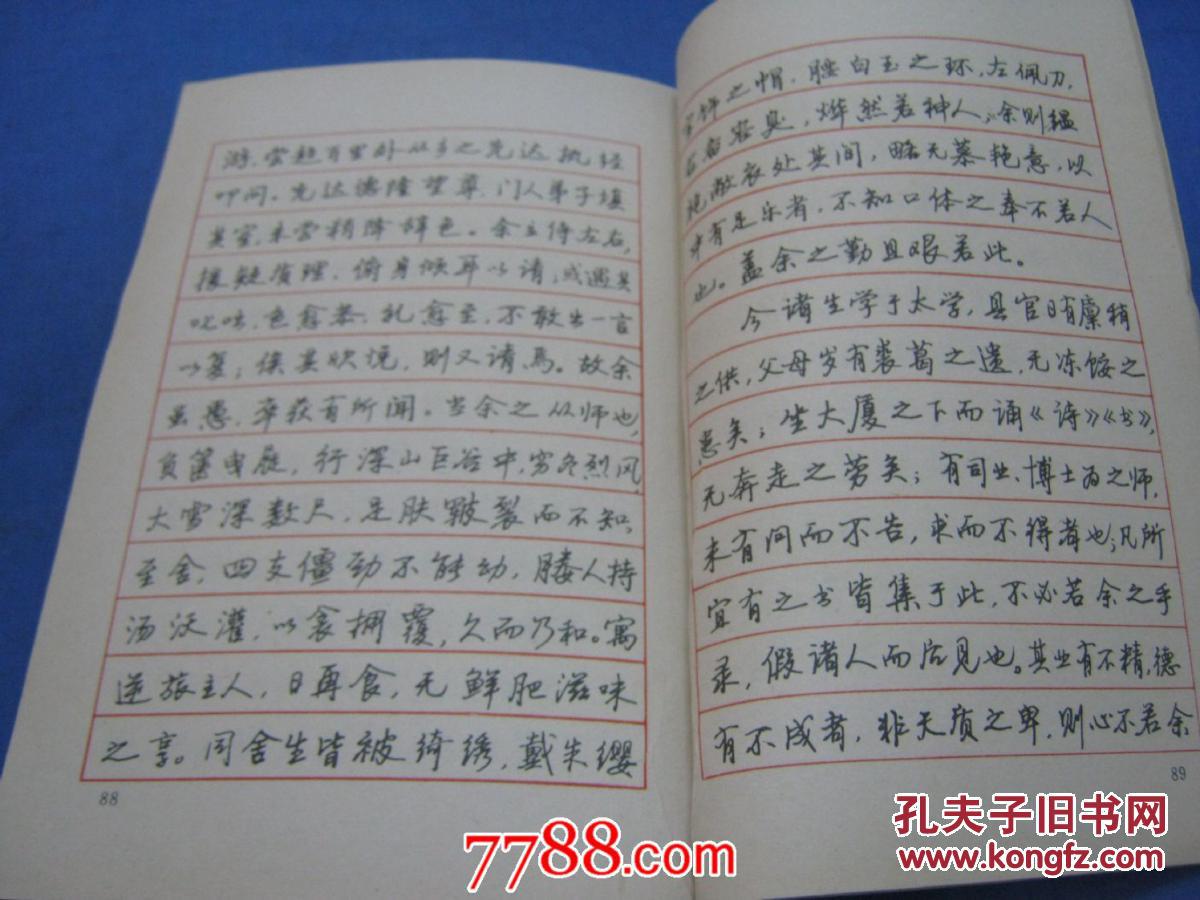 游，尝趋百里外从乡之先达执经
叩问。先达德隆望尊，门人弟子填
其室，未尝稍降辞色。余立侍左右，
援疑质理，俯身倾耳以请；或遇其
叱咄，色愈恭，礼愈至，不敢出一言
以复；俟其欣悦，则又请焉。故余
虽愚，卒获有所闻。当余之从师也，
负箧曳屣，行深山巨谷中，穷冬烈风，
大雪深数尺，足肤皲裂而不知，
至舍，四支僵劲不能动，媵人持
汤沃灌，以衾拥覆，久而乃和。寓
逆旅主人，日再食，无鲜肥滋味
之享。同舍生皆被绮绣，戴朱缨
88
宝饰之帽，腰白玉之环，左佩刀，
右备容臭，烨然若神人；余则缊
袍敝衣处其间，略无慕艳意，以
中有足乐者，不知口体之奉不若人
也。盖余之勤且艰若此。
今诸生学于太学，县官日有廪稍
之供，父母岁有裘葛之遗，无冻馁之
患矣；坐大厦之下而诵《诗》《书》，
无奔走之劳矣；有司业、博士为之师，
未有问而不告，求而不得者也；凡所
宜有之书皆集于此，不必若余之手
录，假诸人而后见也。其业有不精，德
有不成者，非天质之卑，则心不若余
89
7788.com
孔夫子旧书网
www.kongfz.com